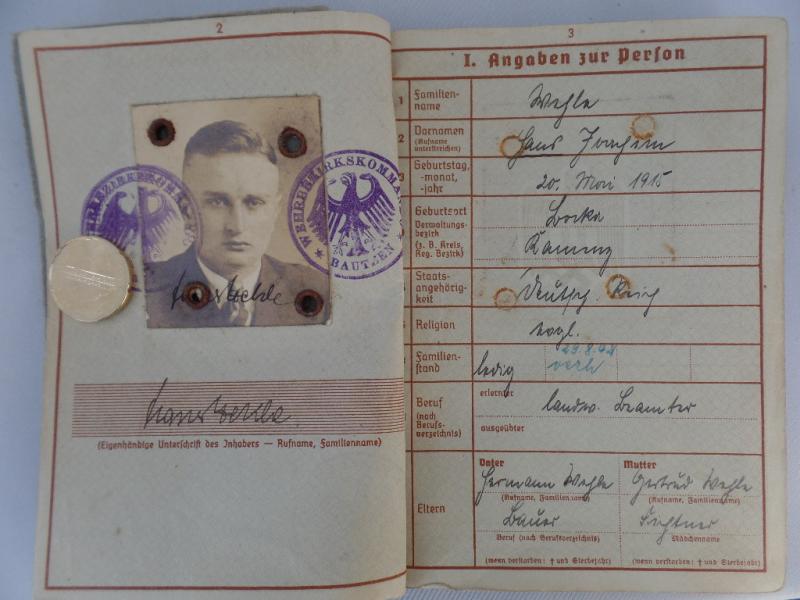 2
WEHRBEZIRKSKOMMANDO
BAUTZEN
Hans Wehle
Hans Wehle
(Eigenhändige Unterschrift des Inhabers — Rufname, Familienname)
3
I. Angaben zur Person
1 Familien-
name
Wehle
2 Vornamen
(Rufname
unterstreichen)
Hans Joachim
3 Geburtstag,
-monat,
-jahr
20. Mai 1915
Geburtsort
Verwaltungs-
bezirk
(z. B. Kreis,
Reg. Bezirk)
Kamenz
Staats-
angehörig-
keit
Deutsch. Reich
Religion
evgl.
Familien-
stand
ledig
verh
Beruf
(nach
Berufs-
verzeichnis)
erlernter
landw. Beamter
ausgeübter
Eltern
Vater
Hermann Wehle
(Rufname, Familienname)
Bauer
Beruf (nach Berufsverzeichnis)
(wenn verstorben: † und Sterbejahr)
Mutter
Gertrud Wehle
(Rufname, Familienname)
Mädchenname
(wenn verstorben: † und Sterbejahr)